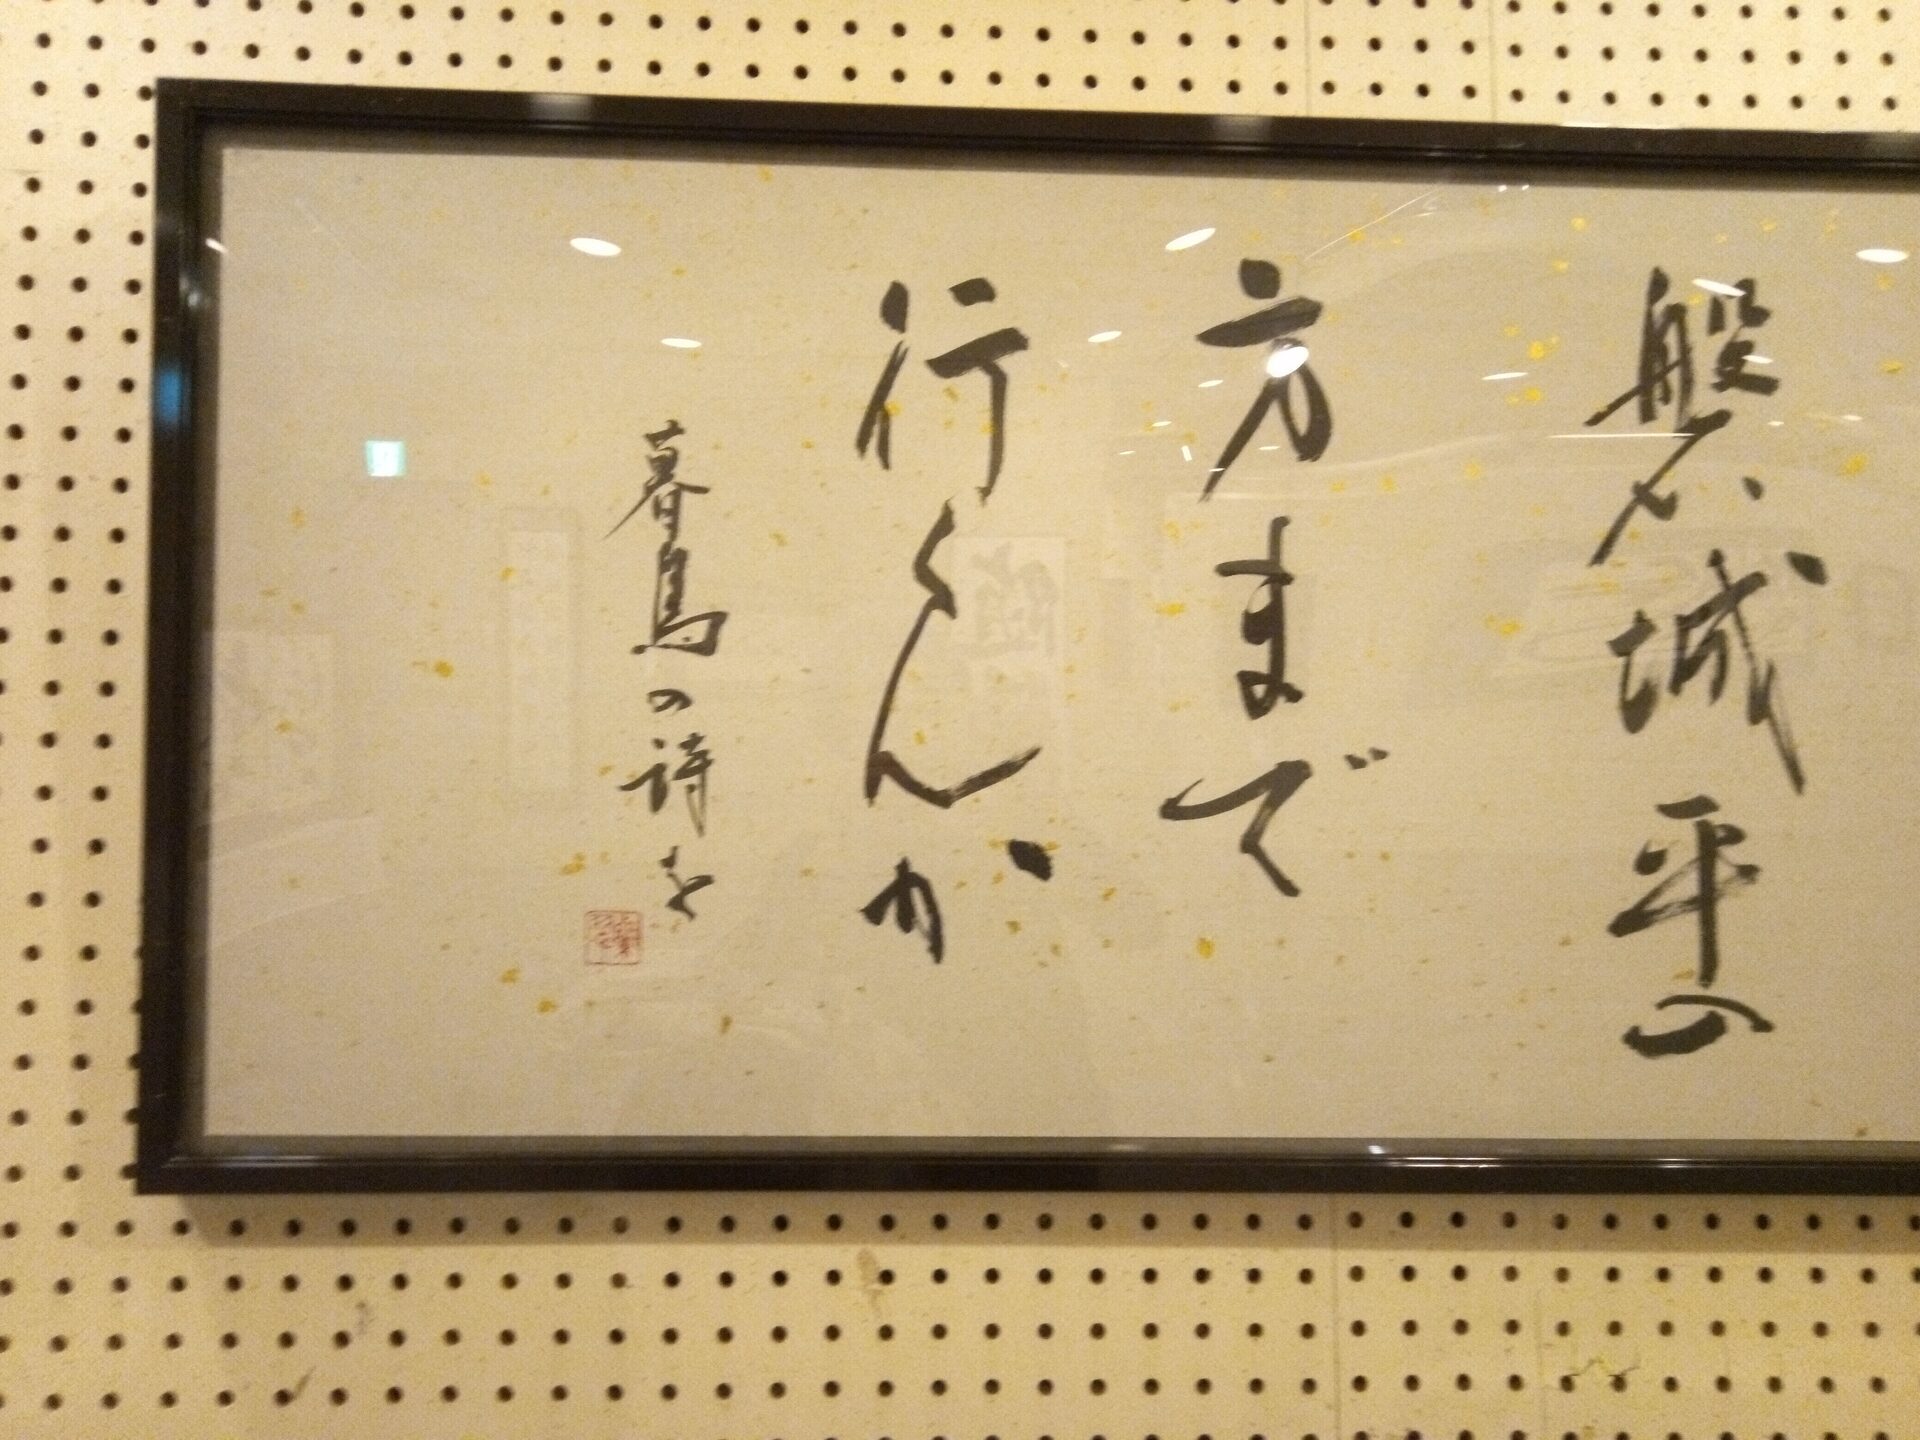 磐城平の
方まで
行くんか
暮鳥の詩を